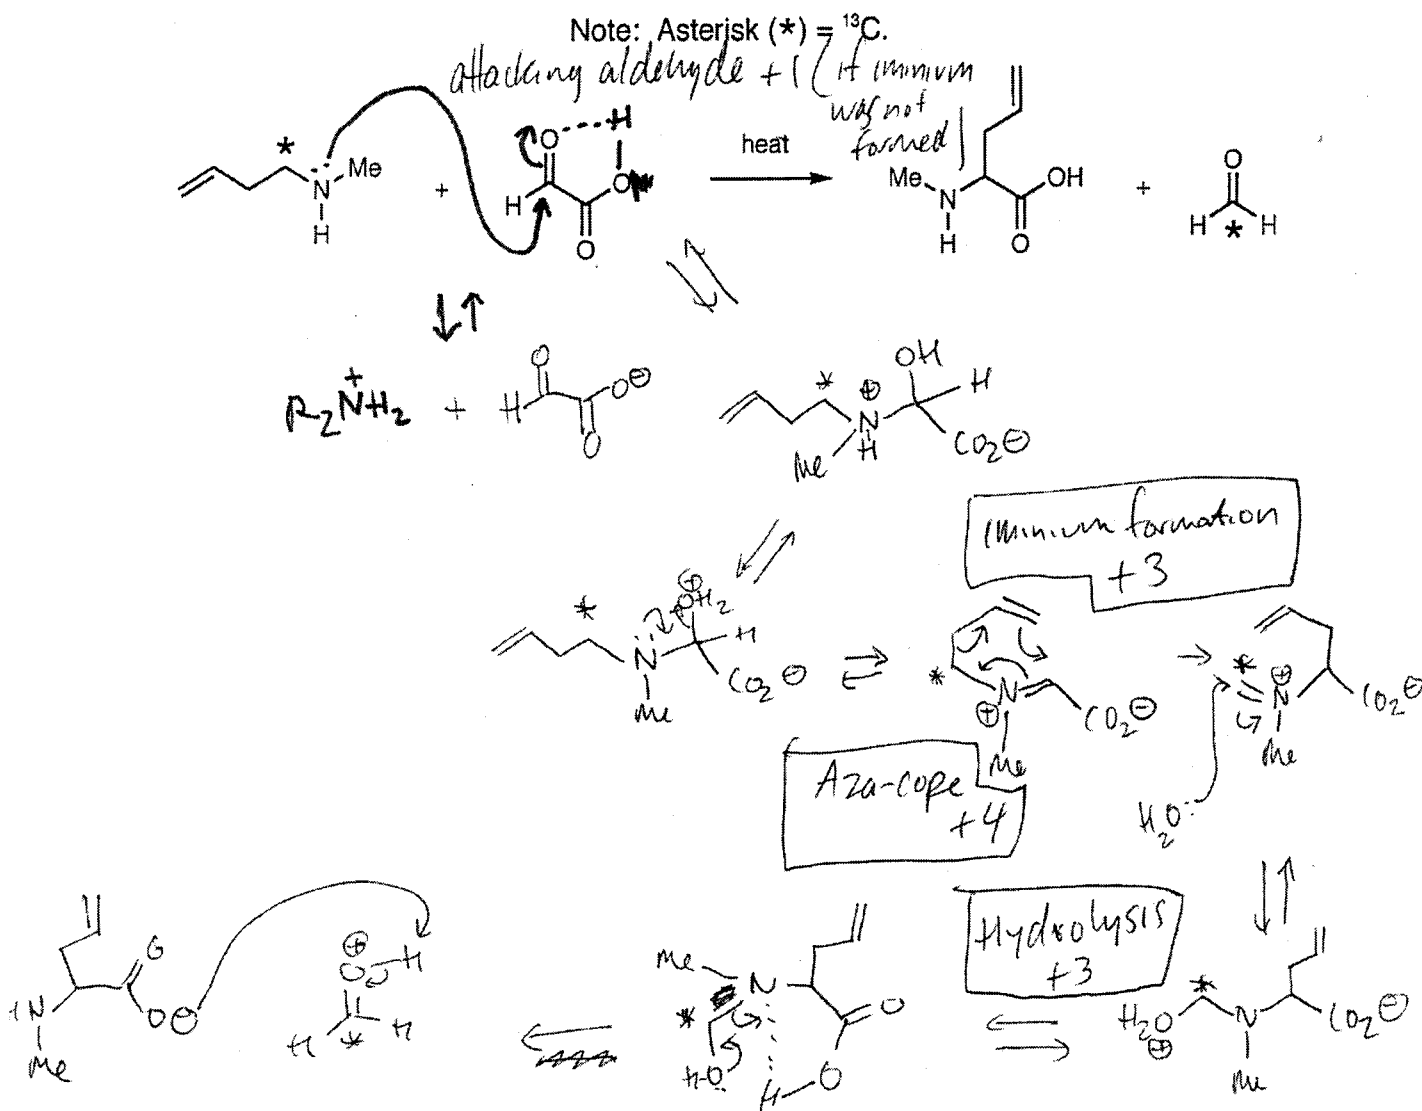 Note: Asterisk (*) = ¹³C.
attacking aldehyde +1 (if iminium
was not
formed)
*
N
Me
H
+
H
O
H
O
O
heat
Me
N
H
OH
O
+
O
H
*
H
R₂N⁺H₂ + H
O
O⊖
O
*
⊕
N
H
Me
OH
H
CO₂⊖
iminium formation
+3
*
N
Me
⊕
OH₂
H
CO₂⊖
*
⊕
N
Me
CO₂⊖
*
⊕
N
Me
CO₂⊖
H₂O:
Aza-cope
+4
Hydrolysis
+3
H
N
Me
O
O
⊖
⊕
O
H
H
*
H
Me
N
*
H
O
H
O
O
*
H₂O
⊕
N
Me
CO₂⊖